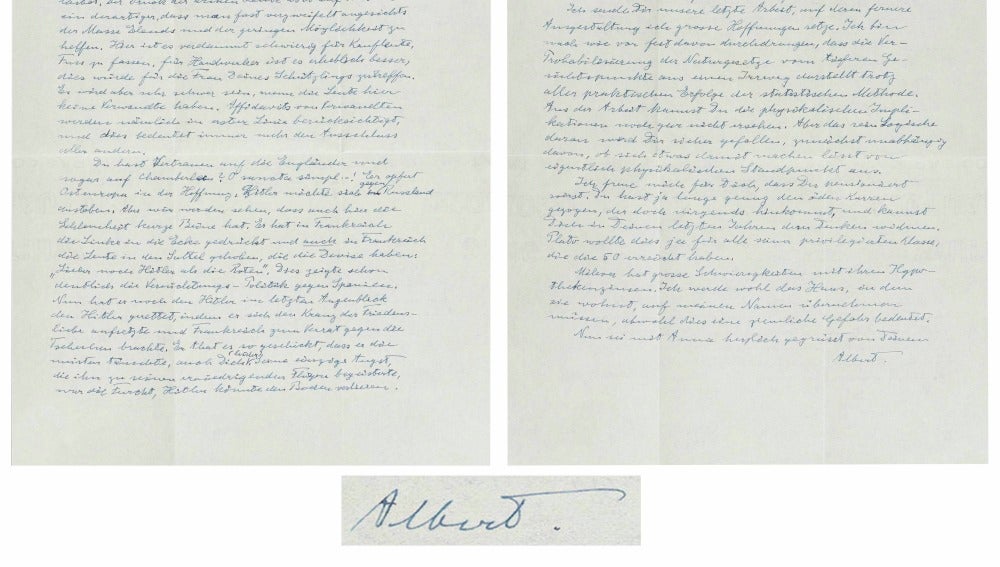 ein derartiger, dass man fast verzweifelt angesichts
der Masse Elends und der geringen Möglichkeit zu
helfen. Hier ist es verdammt schwierig für Kaufleute,
Fuss zu fassen, für Handwerker ist es erheblich besser,
dies würde für die Frau Deines Schützlings zutreffen.
Es wird aber sehr schwer sein, wenn die Leute hier
keine Verwandte haben. Affidavits von Verwandten
werden nämlich in erster Linie berücksichtigt,
und dies bedeutet immer mehr den Ausschluss
aller andern.
Du hast Vertrauen auf die Engländer und
sogar auf Chamberlen? O sancta simpl..! Er opfert
Osteuropa in der Hoffnung, Hitler möchte sich gegen Russland
austoben. Aber wir werden sehen, dass auch hier die
Schlauheit kurze Beine hat. Er hat in Frankreich
die Linke in die Ecke gedrückt und auch in Frankreich
die Leute in den Sattel gehoben, die die Devise haben:
„Lieber noch Hitler als die Roten". Dies zeigte schon
deutlich die Vernichtungs-Politik gegen Spanien.
Nun hat er noch den Hitler im letzten Augenblick
den Hitler gerettet, indem er sich den Kranz der Friedens-
liebe aufsetzte und Frankreich zum Verrat gegen die
Tschechen brachte. Er that es so geschickt, dass er die
meisten täuschte, auch Dich (leider). Seine einzige Angst,
die ihn zu seinen erniedrigenden Flügen begeisterte,
war die Furcht, Hitler könnte den Boden verlieren.
Ich sende Dir unsere letzte Arbeit, auf deren fernere
Ausgestaltung ich grosse Hoffnungen setze. Ich bin
nach wie vor fest davon durchdrungen, dass die Ver-
Probabilisierung der Naturgesetze vom tieferen Ge-
sichtspunkte aus einen Irrweg darstellt trotz
aller praktischen Erfolge der statistischen Methode.
Aus der Arbeit kannst Du die physikalischen Impli-
kationen noch gar nicht ersehen. Aber das rein Logische
daran wird Dir sicher gefallen, zunächst unabhängig
davon, ob sich etwas damit machen lässt vom
eigentlich physikalischen Standpunkt aus.
Ich freue mich für Dich, dass Du pensioniert
wirst. Du hast ja lange genug den öden Karren
gezogen, der doch nirgends hinkommt, und kannst
Dich in Deinen letzten Jahren dem Denken widmen.
Plato wollte dies ja für alle seine privilegierten Klasse,
die die 50 erreicht haben.
Mileva hat grosse Schwierigkeiten mit ihren Hypo-
thekenzinsen. Ich werde wohl das Haus, in dem
sie wohnt, auf meinen Namen übernehmen
müssen, obwohl dies eine ziemliche Gefahr bedeutet.
Nun sei mit Anna herzlich gegrüsst von Deinem
Albert.
Albert.